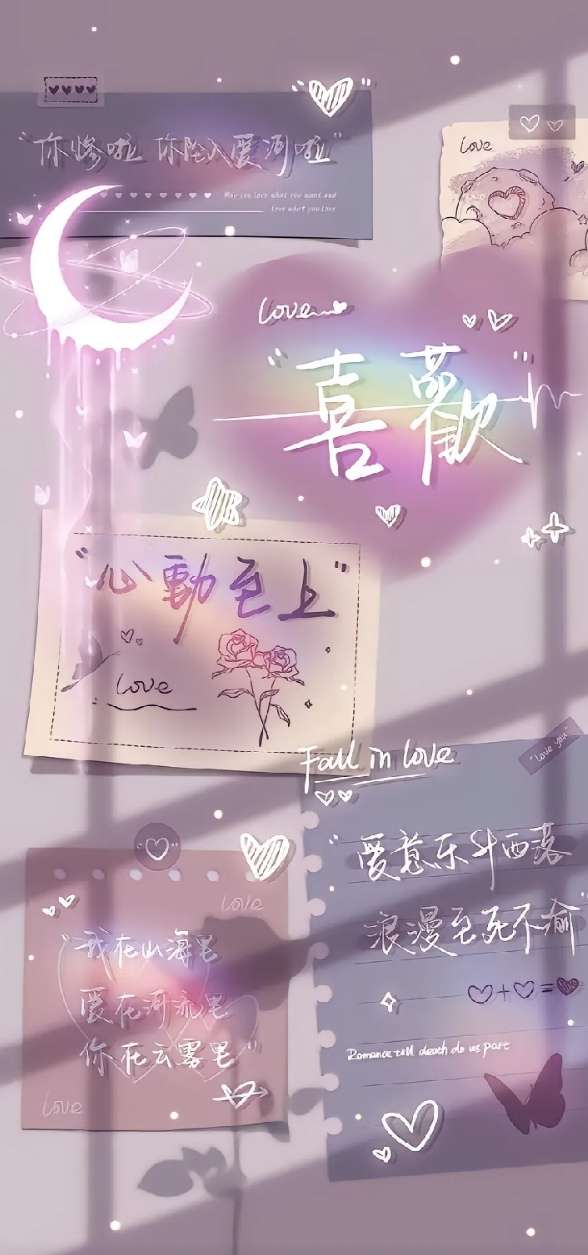 "你惨啦 你坠入爱河啦"
May you love what you want and
Love what you love
Love
Love
"喜歡"
"心動至上"
Love
Fall in love
"Love you"
"爱意东升西落
浪漫至死不渝"
Romance till death do us part
Love
"我在山海里
爱在河流里
你在云雾里"
Love